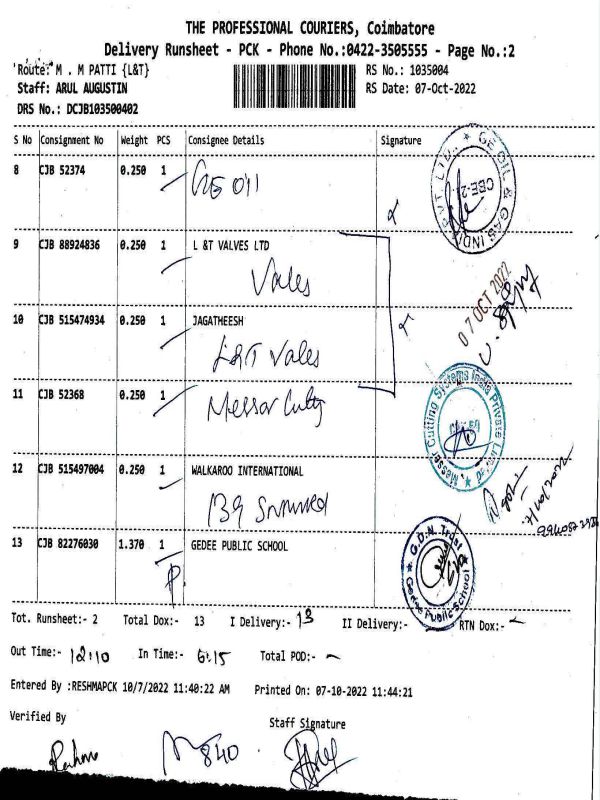 THE PROFESSIONAL COURIERS, Coimbatore
Delivery Runsheet - PCK - Phone No.:0422-3505555 - Page No.:2
Route: M . M PATTI {L&T}
RS No.: 1035004
Staff: ARUL AUGUSTIN
RS Date: 07-Oct-2022
DRS No.: DCJB103500402
S No Consignment No Weight PCS Consignee Details Signature
8 CJB 52374 0.250 1 GE Oil
GE OIL & GAS INDIA PVT. LTD.
CBE-2
9 CJB 88924836 0.250 1 L &T VALVES LTD
Vales
07 OCT 2022
10 CJB 515474934 0.250 1 JAGATHEESH
L&T Vales
11 CJB 52368 0.250 1 Messar Cutting
Messer Cutting Systems India Private Limited
12 CJB 515497004 0.250 1 WALKAROO INTERNATIONAL
13 CJB 82276030 1.370 1 GEDEE PUBLIC SCHOOL
P.
G.D.N. Trust
Gedee Public School
Tot. Runsheet:- 2 Total Dox:- 13 I Delivery:- 13 II Delivery:- RTN Dox:-
Out Time:- 12:10 In Time:- 6:15 Total POD:-
Entered By :RESHMAPCK 10/7/2022 11:40:22 AM Printed On: 07-10-2022 11:44:21
Verified By
Staff Signature
840